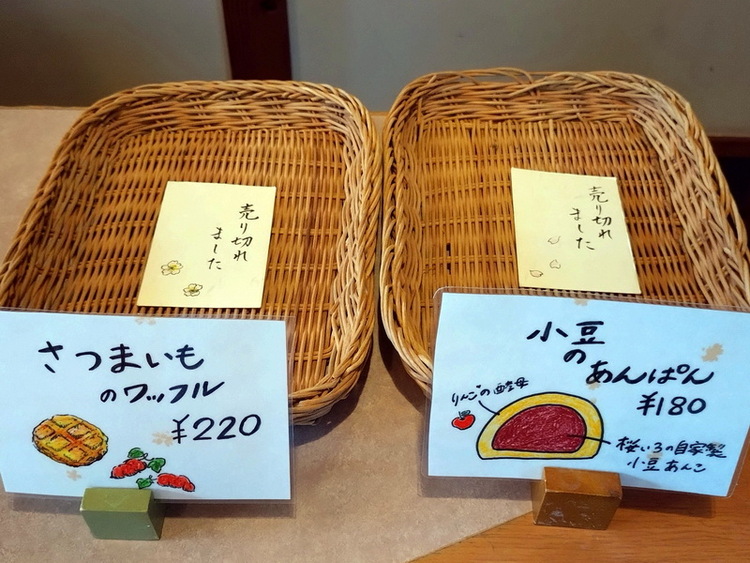 売り切れ
ました
売り切れ
ました
さつまいも
のワッフル
¥220
小豆
の
あんぱん
¥180
りんごの酵母
桜いろの自家製
小豆あんこ